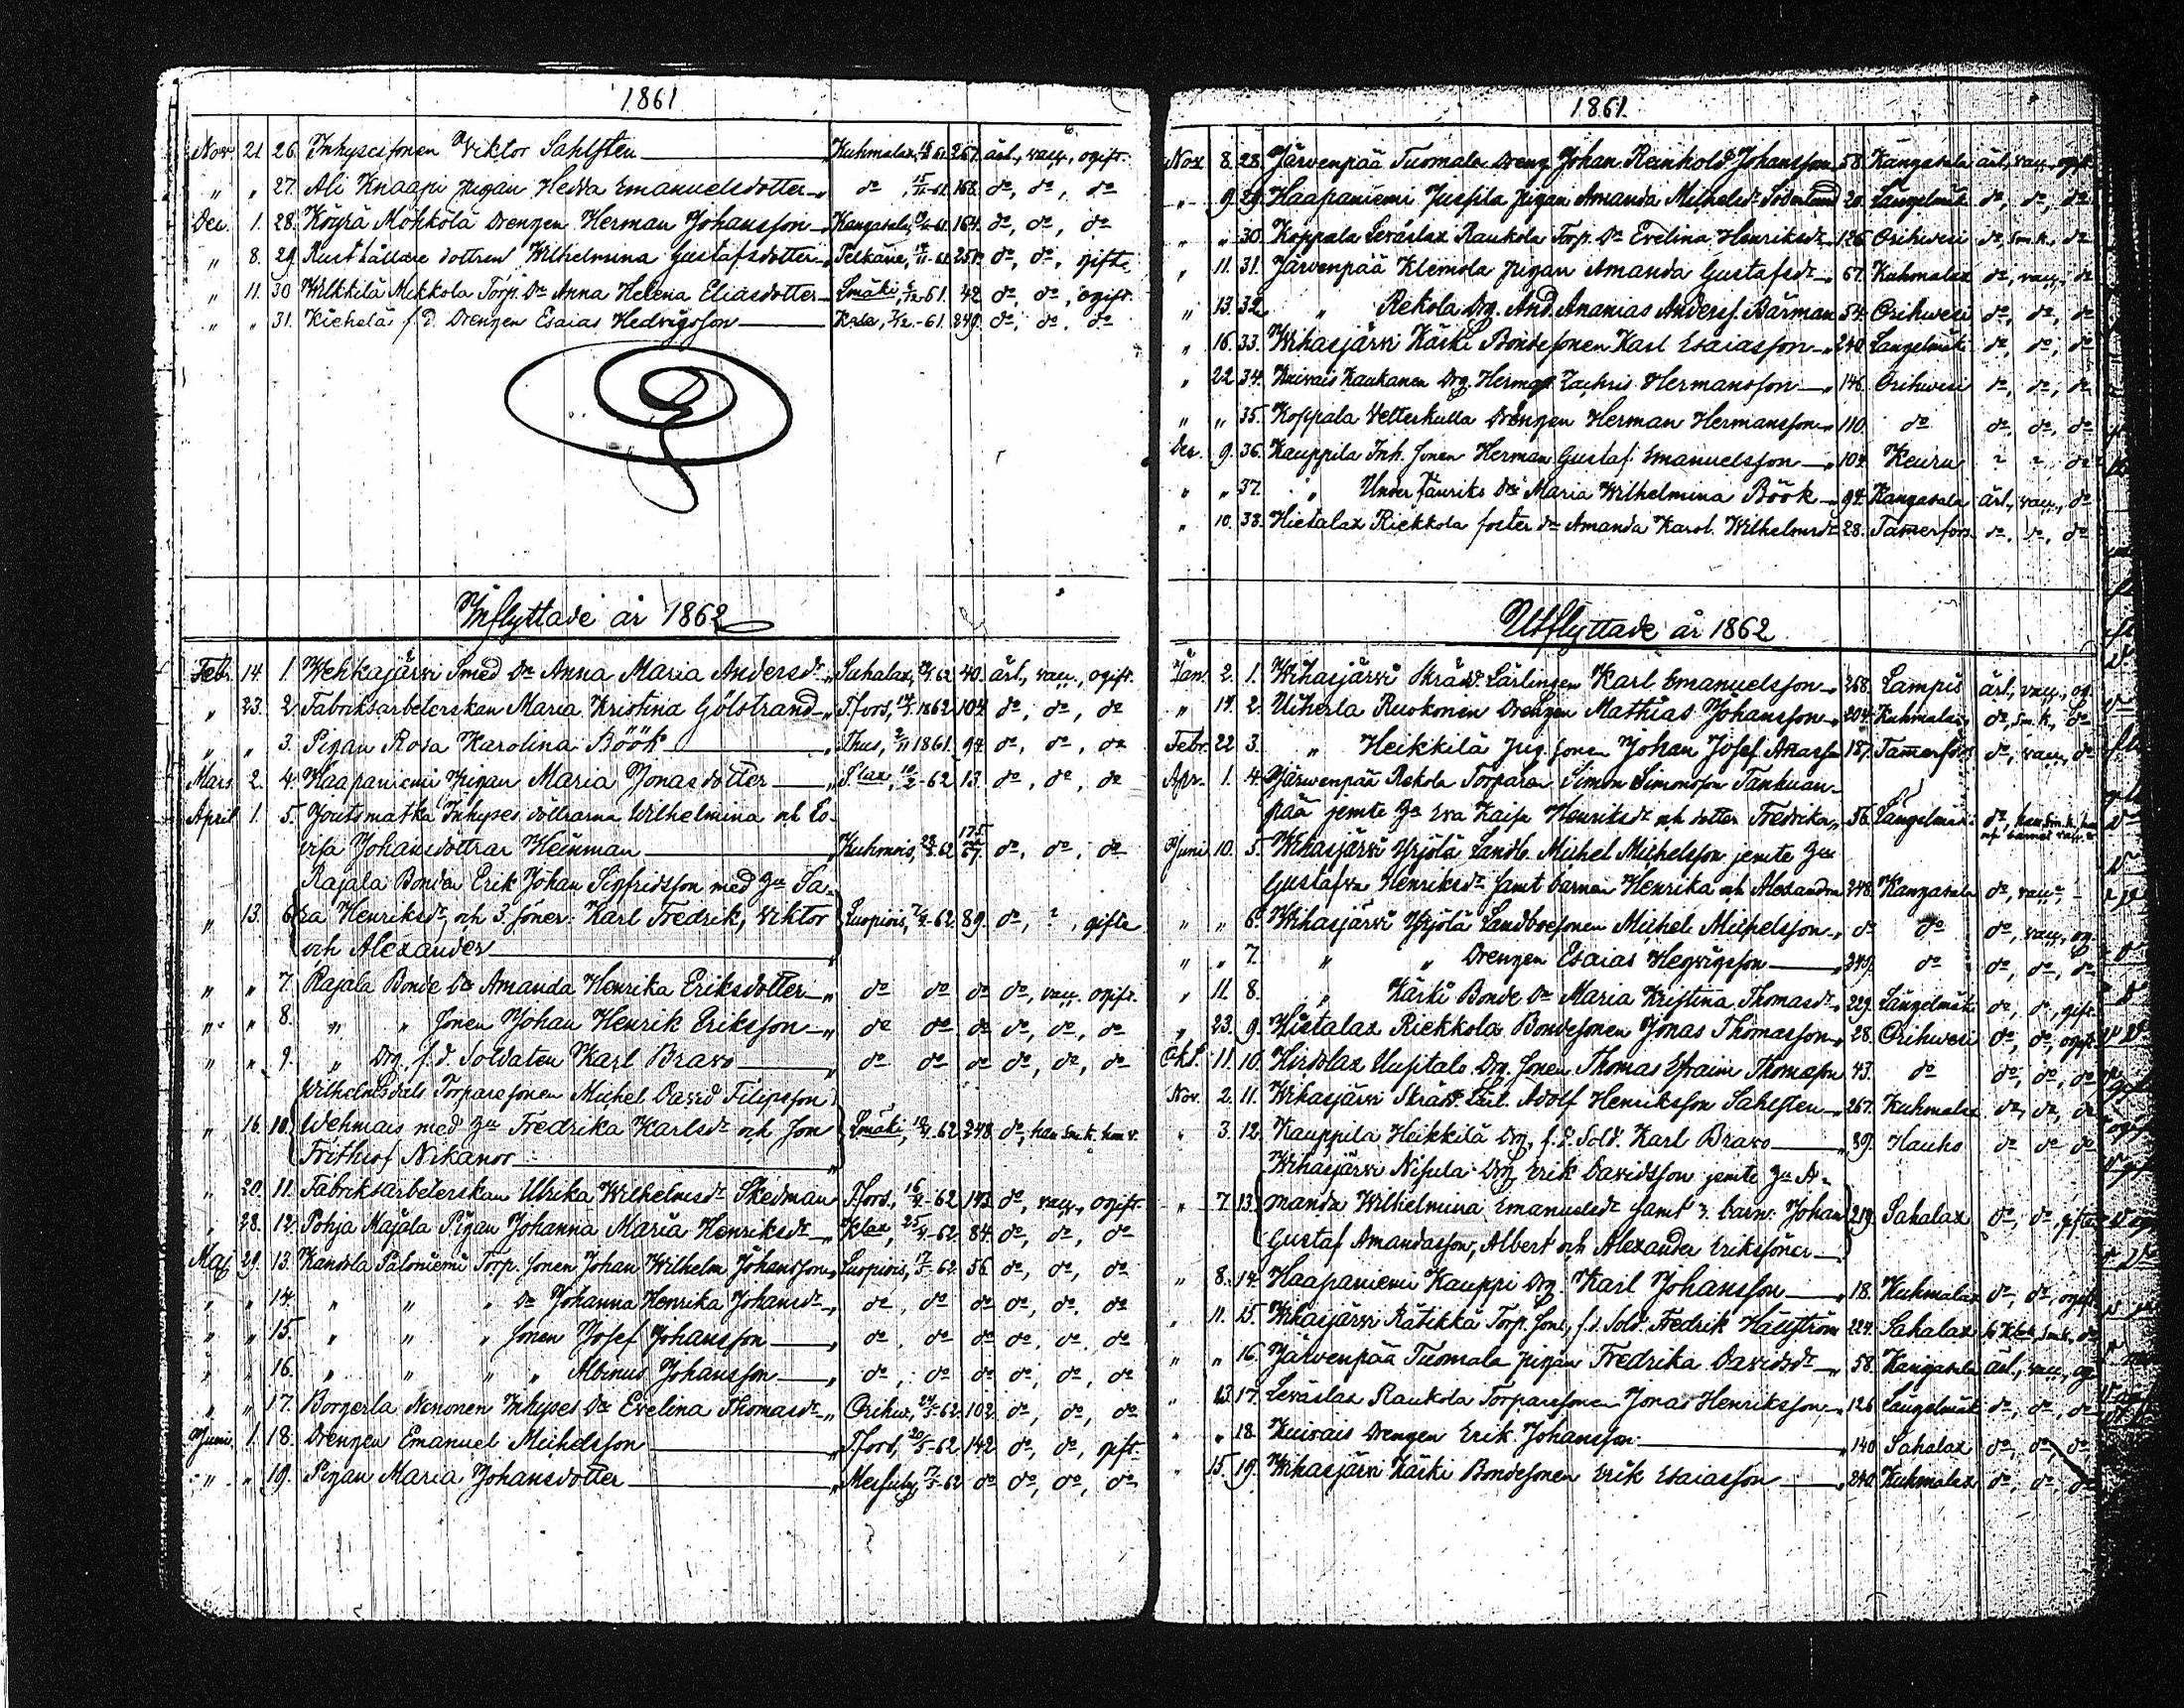 1861
Nov. 21. 26. Inhysessonen Viktor Sahlsten Kuhmalax, 61. 267. ärl., ogift.
" " 27. Ali Knaapi pigan Hedda Emanuelsdotter do, 61. 168. do, do, do
Dec. 1. 28. Köyrä Mokkola Drengen Herman Johansson Kangasala, 61. 164. do, do, do
" 8. 29. Rusthållare dottren Wilhelmina Gustafsdotter Pelkäne, 61. 251. do, do, gift.
" 11. 30 Wilkkilä Mikkola Torp. Dr Anna Helena Eliasdotter Lmäki, 61. 42 do, do, ogift.
" " 31. f. d. Drengen Esaias Hedvigsson -61. 249. do, do, do
Inflyttade år 1862
Febr. 14. 1. Wehkajärvi Smed Dr Anna Maria Andersdr Sahalax, 62 40. ärl., ogift.
" 23. 2. Fabriksarbeterskan Maria Kristina Gölstrand T.fors, 1862 104. do, do, do
" " 3. Pigan Rosa Karolina Böök 1861. 94. do, do, do
Mars 2. 4. Haapaniemi Pigan Maria Jonasdotter -62 13. do, do, do
April 1. 5. Joutsmatka Inhyses döttrarna Wilhelmina och Lo-
visa Johansdöttrar Heinman Kuhmois, 62 175 67. do, do, do
Rajala Bonden Erik Johan Sigfridsson med hu Sa-
" 13. 6. ra Henriksdr, och 3. söner: Karl Fredrik, Viktor Luopiois, 62. 89. do, ?, gifte
och Alexander
" " 7. Rajala Bonde Dr Amanda Henrika Eriksdotter do do do do, ogift.
" " 8. " " sonen Johan Henrik Eriksson do do do do, do, do
" " 9. " Drg. f. d. Soldaten Karl Bravo do do do do, do, do
Wilhelmsdals Torparesonen Michel David Filipsson
" 16. 10. Wehmais med hu Fredrika Karlsdr och son Lmäki, 62 248 do,
Frithiof Nikanor
" 20. 11. Fabriksarbeterskan Ulrika Wilhelmsdr Skedman T.fors, 62 143 do, ogift.
" 28. 12. Pohja Majala Pigan Johanna Maria Henriksdr -62. 84. do, do, do
Maj 29. 13. Kandola Paloniemi Torp. sonen Johan Wilhelm Johansson Luopiois, 62. 56 do, do, do
" " 14. " " " Dr Johanna Henrika Johansdr do, do do do, do, do
" " 15. " " " sonen Josef Johansson do, do do do, do, do
" " 16. " " " " Albinus Johansson do, do do do, do, do
" " 17. Borgerla Nenonen Inhyses Dr Evelina Thomasdr Orihv., 62. 102. do, do, do
Juni. 1. 18. Drengen Emanuel Michelsson T.fors, 62 142 do, do, gift.
" " 19. Pigan Maria Johansdotter Messuby, 62 do do, do, do
1861.
Nov. 8. 28. Järvenpää Tuomala Dreng Johan Reinhold Johansson 58. Kangasala ärl., ogift
" 9. 29. Haapaniemi Jussila pigan Amanda Michelsdr Söderlund 20. Längelmäki do, do, do
" " 30. Koppala Leväslax Raukola Torp. Dr Evelina Henriksdr 126 Orihvesi do, sm.k., do
" 11. 31. Järvenpää Klemola pigan Amanda Gustafsdr 67. Kuhmalax do, do
" 13. 32. " Rekola Drg. And. Ananias Anderss. Bärman 54. Orihvesi do, do, do
" 16. 33. Wihasjärvi Käski Bondesonen Karl Esaiasson 240. Längelmäki do, do, do
" 22. 34. Kuivais Kaukanen Drg. Herman Zachris Hermansson 146. Orihvesi do, do, do
" " 35. Koppala Vetterkulla Drängen Herman Hermansson 110. do do, do, do
Dec. 9. 36. Kauppila Inh. sonen Herman Gustaf Emanuelsson 104. Keuru ? ? do
" " 37. " Under Maria Wilhelmina Böök 94. Kangasala ärl., do
" 10. 38. Hietalax Riekkola foster dr Amanda Karol. Wilhelmsdr 28. Tamerfors do, do, do
Utflyttade år 1862
Jan. 2. 1. Wihasjärvi Skräd. Lärlingen Karl Emanuelsson 268. Lampis ärl., og.
" 14. 2. Uiherla Ruokonen Drengen Mathias Johansson 204. Kuhmalax do, sm.k., do
Febr. 22 3. " Heikkilä sonen Johan Josef 187. Tamerfors do, do
Apr. 1. 4. Järvenpää Rekola Torparen Simon Simonsson Tanhuan-
pää jemte hu Eva Kaisa Henriksdr och dotter Fredrika 56. Längelmäki do,
Juni 10. 5. Wihasjärvi Yrjölä Landb. Michel Michelsson jemte hu
Gustafva Henriksdr samt barnen Henrika och Alexandra 248. Kangasala do,
" " 6. Wihasjärvi Yrjölä Landboesonen Michel Michelsson do do do, og.
" " 7. " " Drengen Esaias Hegvigsson 249. do do, do, do
" 11. 8. " Kärki Bonde Dr Maria Kristina Thomasdr 229. Längelmäki do, do, gift.
" 23. 9. Hietalax Riekkola Bondesonen Jonas Thomasson 28. Orihvesi do, do, ogift
Okt. 11. 10. Hirvilax Uusitalo Drg. sonen Thomas Efraim Thomasson 43. do do, do, do
Nov. 2. 11. Wihasjärvi Skräd. Lärl. Adolf Henriksson Sahlsten 267. Kuhmalax do, do, do
" 3. 12. Kauppila Heikkilä Drg. f. d. Sold. Karl Bravo 89. Hauho do do do
Wihasjärvi Nisula Drg. Erik Davidsson jemte hu A-
" 7. 13. manda Wilhelmina Emanuelsdr samt 3. barn: Johan 219. Sahalax do, do, gifte
Gustaf Amandasson, Albert och Alexander Erikssöner
" 8. 14. Haapaniemi Kauppi Drg. Karl Johansson 18. Kuhmalax do, do, ogift
" 11. 15. Wihasjärvi Rätikkä Torp. son, f.d. Sold. Fredrik Hällström 224. Sahalax sm.k., do
" " 16. Järvenpää Tuomala pigan Fredrika Davidsdr 58. Kangasala ärl., og
" 13. 17. Leväslax Raukola Torparesonen Jonas Henriksson 126 Längelmäki do, do, do
" " 18. Kuivais Drengen Erik Johansson 140 Sahalax do, do, do
" 15. 19. Wihasjärvi Käski Bondesonen Erik Esaiasson 240. Kuhmalax do, do, do